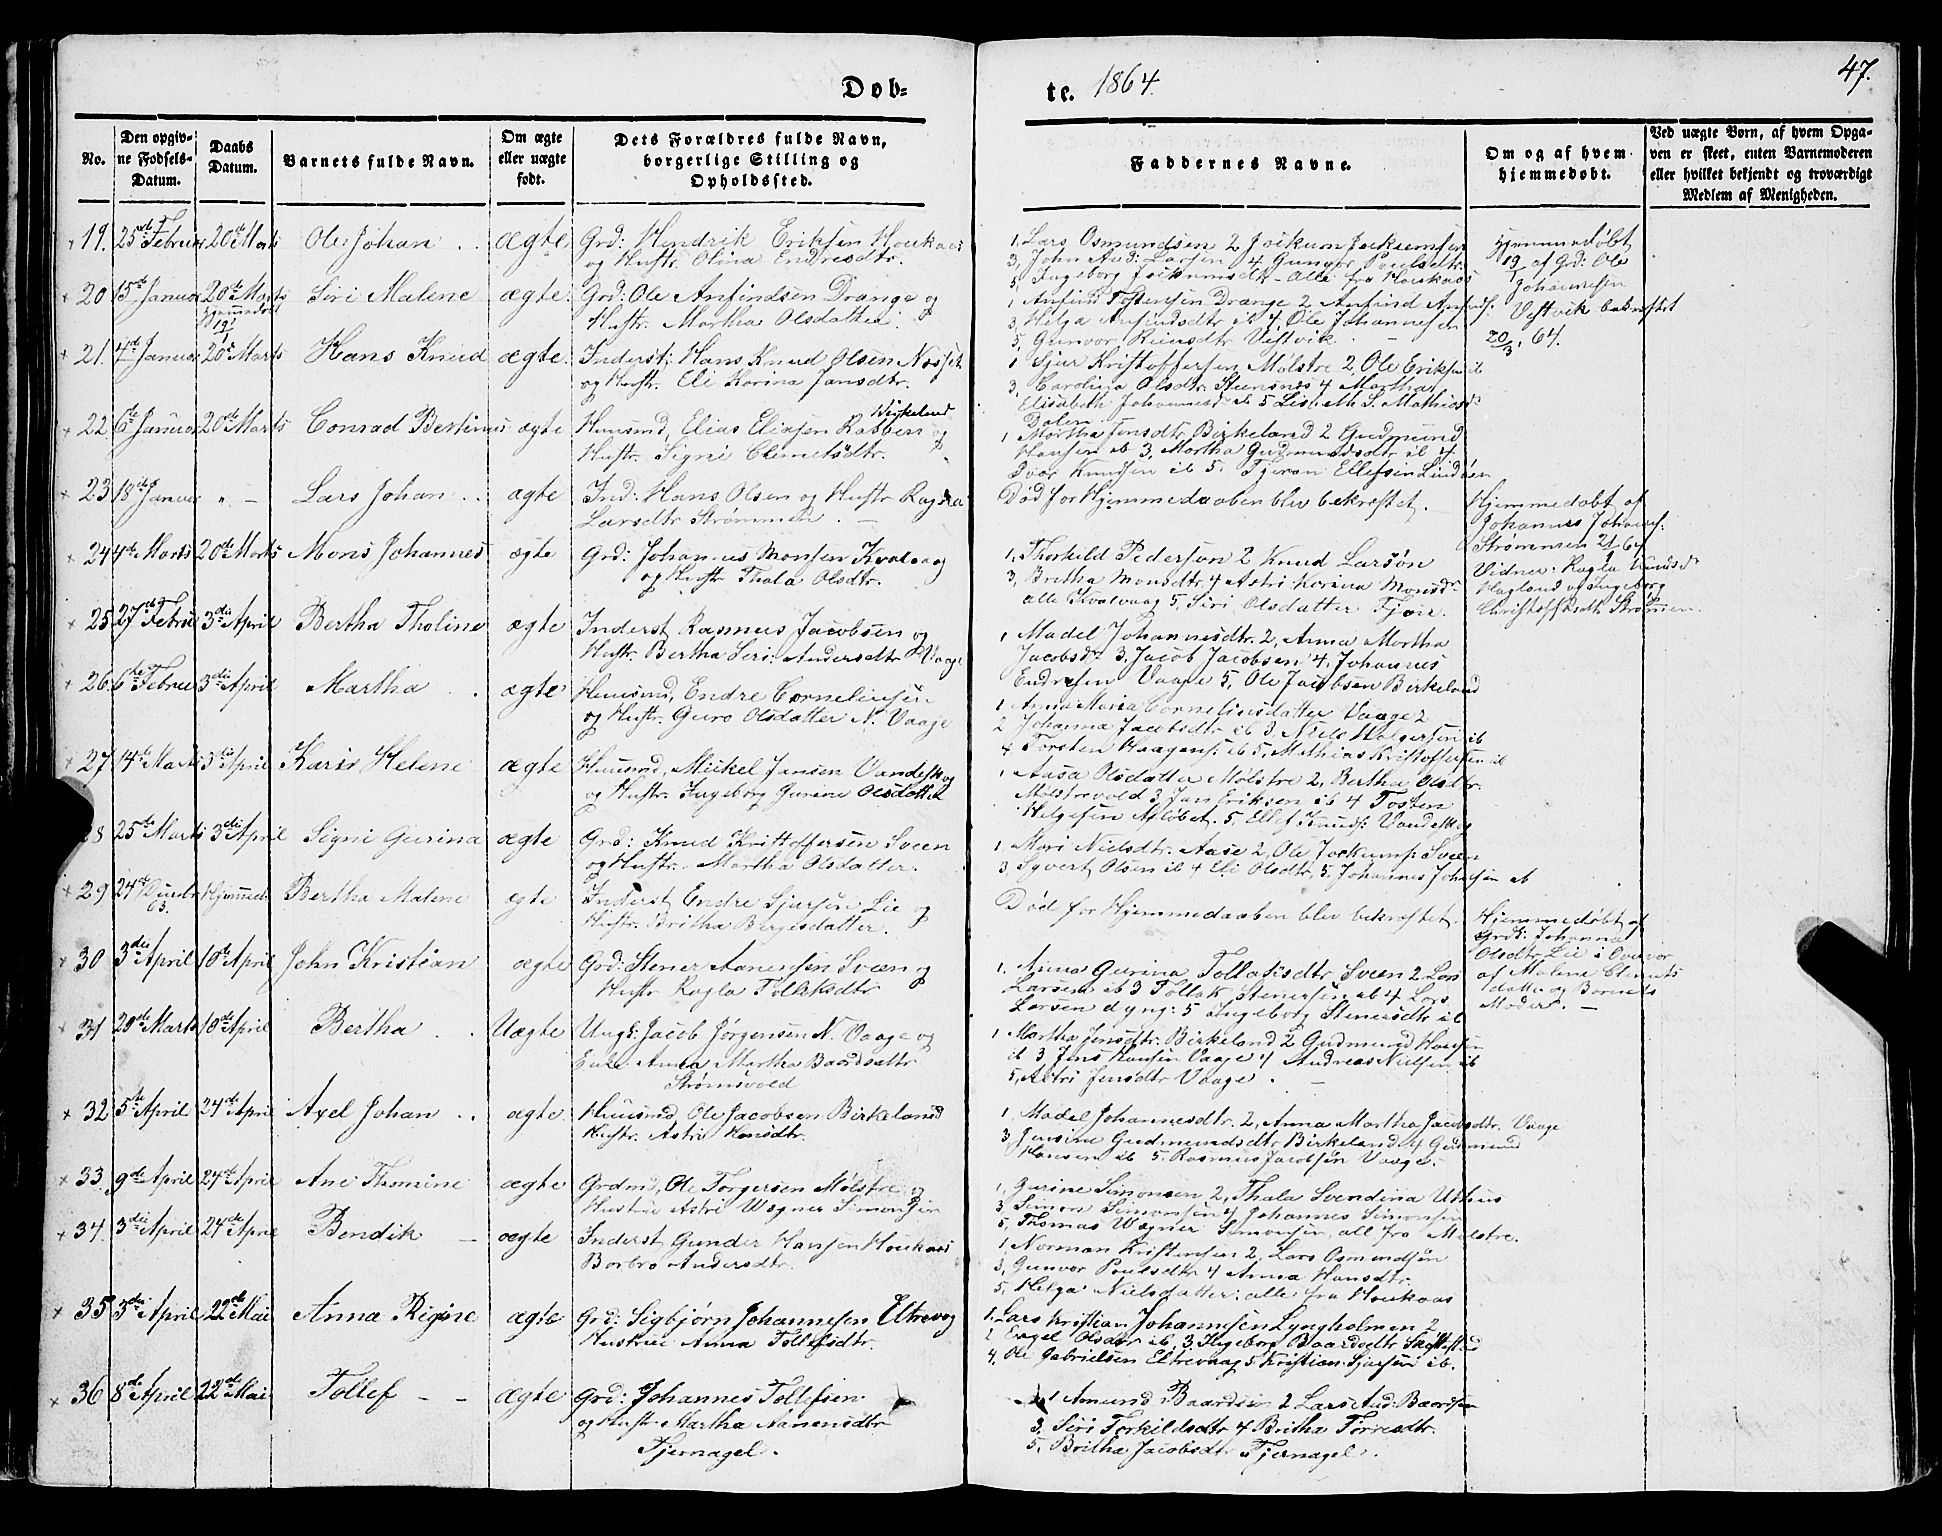 47.
Døb=
te. 1864.
No.
Den opgiv-
ne Fødsels-
Datum.
Daabs
Datum.
Barnets fulde Navn.
Om ægte
eller uægte
født.
Dets Forældres fulde Navn,
borgerlige Stilling og
Opholdssted.
Faddernes Navne.
Om og af hvem
hjemmedøbt.
Ved uægte Børn, af hvem Opga-
ven er skeet, enten Barnemoderen
eller hvilket bekjendt og troværdigt
Medlem af Menigheden.
19. 25de Februar 20de Marts Ole Johan ægte Grd: Hendrik Eriksen Houkaas
og Hustr. Olina Endresdtr.
1, Lars Osmundsen 2 Joikum Joikumsen
3, John And: Larsen 4 Gunvor Poulsdtr.
5, Ingeborg Joikumsdtr. Alle fra Houkaas
Hjemmedøbt
19/1 af Grd: Ole
Johannesen
Vestvik bekræftet
20/3. 64.
20 15de Januar 20de Marts Siri Malene ægte Grd: Ole Anfindsen Drange og
Hjemmedøbt
19/1
Hustr. Martha Olsdatter.
1 Anfind Tostensen Drange 2 Anfind Anfinds.
3, Helga Anfindsdtr ib 4, Ole Johannesen
5, Gunvor Vestvik.
21. 4de Januar 20de Marts Hans Knud ægte Inderst: Hans Knud Olsen
og Hustr. Eli Karina Jansdtr.
1 Sjur Kristoffersen Molstre 2, Ole Eriksen ib
3, Carolina Olsdtr. Stensnes 4 Martha
Elisabeth Johannesd ib 5 Lisa M. S. Mathiasd.
Dalen
22. 6te Januar 20de Marts Conrad Bertinus ægte Huusmd, Elias Eliasen Rabben Birkeland og
Hustr. Signi Clemetsdtr.
1 Martha Jensdtr. Birkeland 2 Gudmund
Hansen ib 3, Martha Gudmundsdtr ib 4
Ivar Knudsen ib 5. Tjeran Ellefsen Lindøen
23 18de Januar " — Lars Johan ægte Ind: Hans Olsen og Hustr Ragla
Larsdtr Strømmen.
Død før Hjemmedaaben blev bekræftet.
Hjemmedøbt af
Johannes Johannes.
Strømmen 64
Vidner: Ragla Knudsd.
Hagland og Ingeborg
Christoffersdtr. Strømmen.
24 4de Marts 20de Marts Mons Johannes ægte Grd: Johannes Monsen Kvalvaag
og Hustr Thala Olsdtr.
1, Thorkild Pedersøn 2 Knud Larsøn
3, Bretha Monsdtr. 4 Astri Karina Monsdr
alle Kvalvaag 5, Siri Olsdatter Tjøn.
25 27de Februar 3die April Bertha Tholine ægte Inderst Rasmus Jacobsen og
Hustr. Bertha Seri Andersdtr N. Vaage
1 Madel Johannesdtr. 2, Anna Martha
Jacobsdr 3. Jacob Jacobsen 4, Johannes
Endresen Vaage 5, Ole Jacobsen Birkeland
26. 6te Februar 3die April Martha ægte Huusmd, Endre Corneliussen
og Hustr. Guro Olsdatter N. Vaage
1 Anna Maria Corneliusdatter Vaage 2
2 Johanna Jacobsdtr ib 3, Niels Holgersen ib
4 Torsten Haagens. ib 5, Mathias Kristoffersen ib
27 14de Marts 3die April Karis Helene ægte Huusmd, Mickel Jansen Vandeskog
og Hustr. Ingeborg Gurine Olsdatter
1, Aasa Olsdatter Mølstre 2, Bertha Olsdtr.
Mølstrevold 3, Jan Eriksen ib 4 Tosten
Helgesen Asløbet. 5, Ellef Knuds. Vandeskog
28 25de Marts 3die April Signi Gurina ægte Grd: Knud Kristoffersen Sveen
og Hustr. Martha Olsdatter.
1, Mari Nielsdtr. Aase 2, Ole Jockums. Sveen
3, Syvert Olsen ib 4 Eli Olsdtr. 5, Johannes Johnsen ib
29 24de
63. Hjemmed. Bertha Malene ægte Inderst Endre Sjursen Lie og
Hustr. Britha Børgesdatter.
Død før Hjemmedaaben blev bekræftet
Hjemmedøbt af
Grdk. Johanna
Olsdtr. Lie i Overvær
af Malene Clemets
datter og Barnets
Moder. —
30 3die April 10de April John Kristian ægte Grd: Stener Aanensen Sveen og
Hustr Ragla Tolleksdtr
1. Anna Gurina Tollaksdtr Sveen 2 Lars
Larsen ib 3 Tollak Stenersen ib 4 Lars
Larsen d yng: 5 Ingeborg Stenersdtr ib
31 20de Marts 10de April Bertha Uægte Ungk. Jacob Jørgensen N. Vaage og
Enke Anna Martha Baardsdtr
Strømsvold
1 Martha Jensdtr. Birkeland 2 Gudmund Hansen
ib 3 Jens Hansen Vaage 4 Andreas Nielsen ib
5, Astri Jensdtr Vaage.
32 5te April 24de April Axel Johan ægte Huusmd, Ole Jacobsen Birkeland
Hustr. Astri Hansdtr.
1, Madel Johannesdtr. 2, Anna Martha Jacobsdtr. Vaage
3, Jensine Gudmundsdtr Birkeland 4 Gudmund
Hansen ib 5. Rasmus Jacobsen Vaage.
33. 9de April 24de April Ane Thomine ægte Grdmd, Ole Torgersen Mølstre og
Hustrue Astri Wegner Simonsen
1, Gurine Simonsen 2, Thala Svendina Uthus
3 Simon Simonsen 4 Johannes Simonsen
5, Thomas Wegner Simonsen, all fra Mølstre.
34. 3die April 24de April Bendik ægte Inderst Gunder Hansen Houkaas
Barbro Andersdtr.
1, Norman Kristensen 2, Lars Osmundsen
3, Gunvor Poulsdtr 4 Anna Hansdtr.
5, Helga Nielsdatter: alle fra Houkaas
35 3die April 22de Mai Anna Regine ægte Grd: Sigbjørn Johannesen Eltrevog
Hustrue Anna Tollefsdtr.
1. Lars Kristian Johannesen Lyngholmen 2
2 Engel Olsdtr ib. 3, Ingeborg Baardsdtr
4, Ole Gabrielsen Eltrevaag 5 Kristian Sjursen ib.
36 8de April 22de Mai Tollef ægte Grd: Johannes Tollefsen
og Hustr. Martha Aanensdtr
Tjernagel.
1 Amund Baardsen 2 Lars And: Baardsen
3, Siri Torkildsdtr 4 Britha Torresdtr.
5, Britha Jacobsdtr Tjernagel.